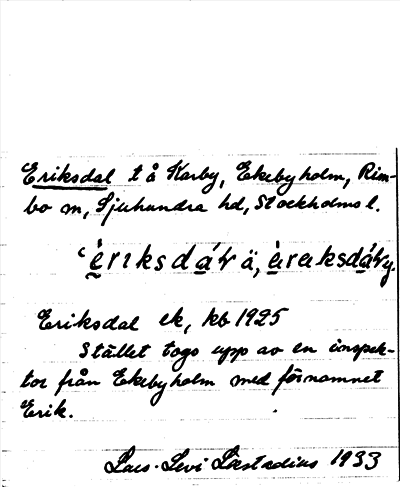 Eriksdal t å Karby, Ekebyholm, Rim-
bo sn, Sjuhundra hd, Stockholms l.
Eriksdal ek, kb 1925
Stället togs upp av en inspek-
tor från Ekebyholm med förnamnet
Erik.
Lars-Levi Læstadius 1933